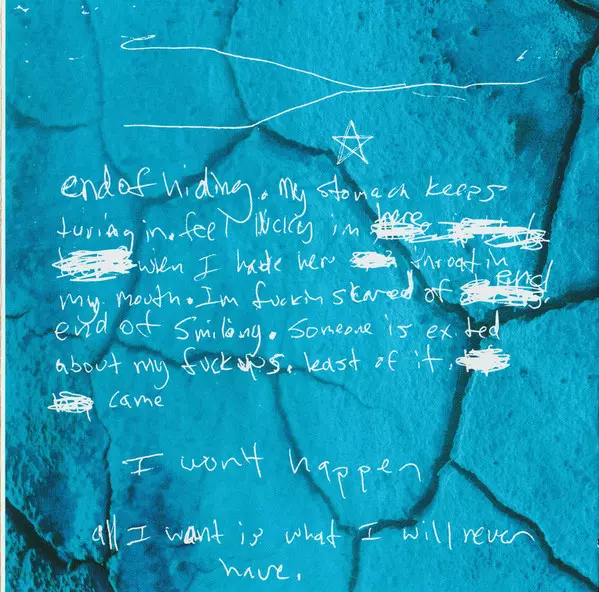 end of hiding. My stomach keeps
turing in. feel lucky im
when I hade her throat in
my mouth. Im fuckin skared of end
end of smiling. Someone is exited
about my fuckups. least of it.
came
I won't happen
all I want is what I will never
have.